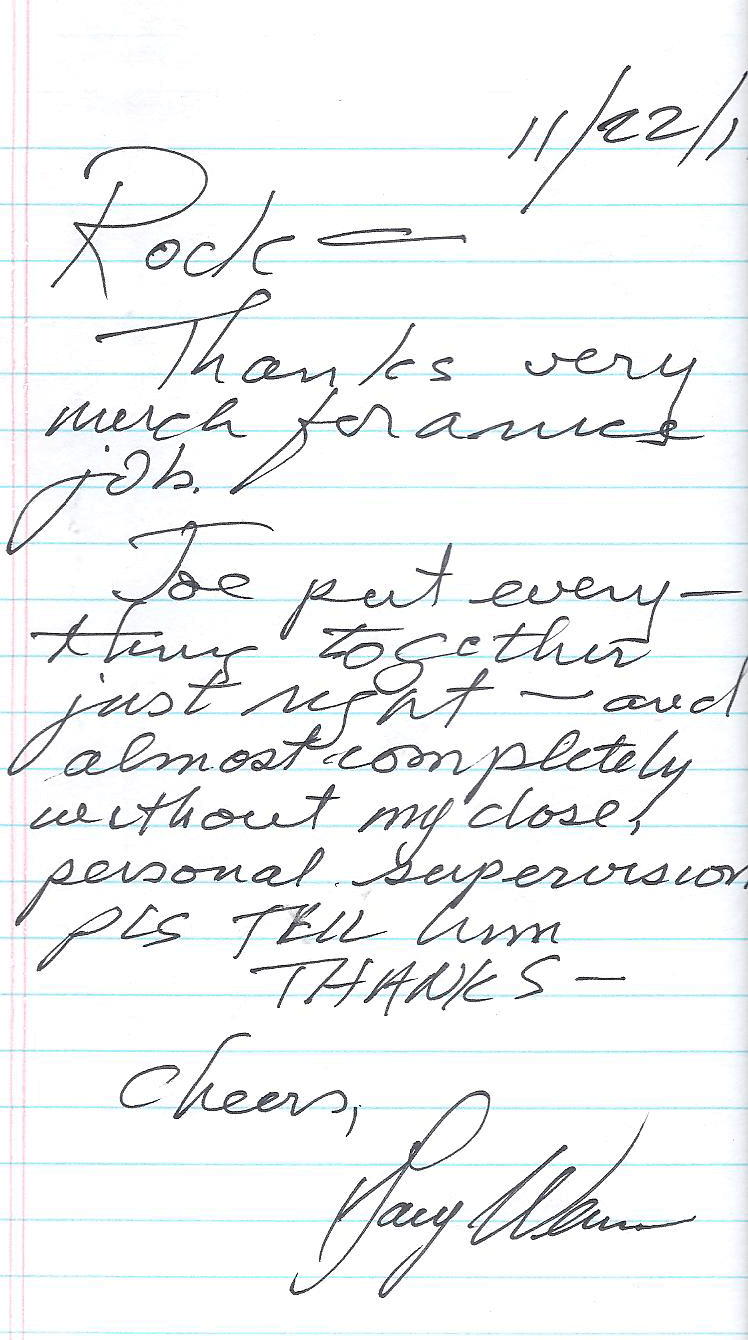 11/22/1
Rock —
Thanks very
much for a nice
job.
Joe put every-
thing together
just right — and
almost completely
without my close,
personal supervision
PLS TELL him
THANKS —
Cheers,